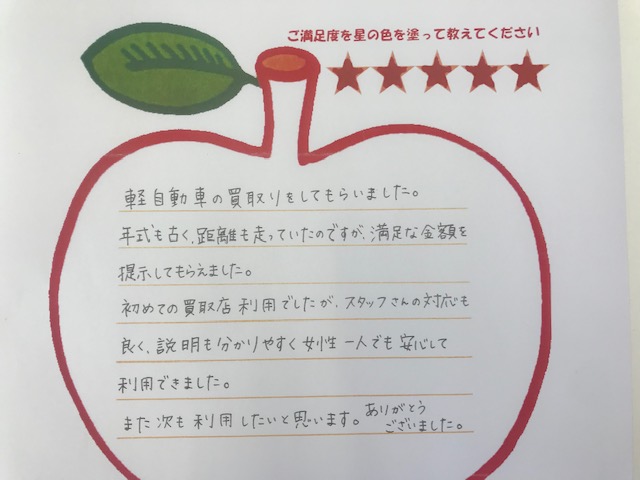 ご満足度を星の色を塗って教えてください
軽自動車の買取りをしてもらいました。
年式も古く、距離も走っていたのですが、満足な金額を
提示してもらえました。
初めての買取店利用でしたが、スタッフさんの対応も
良く、説明も分かりやすく女性一人でも安心して
利用できました。
また次も利用したいと思います。ありがとう
ございました。